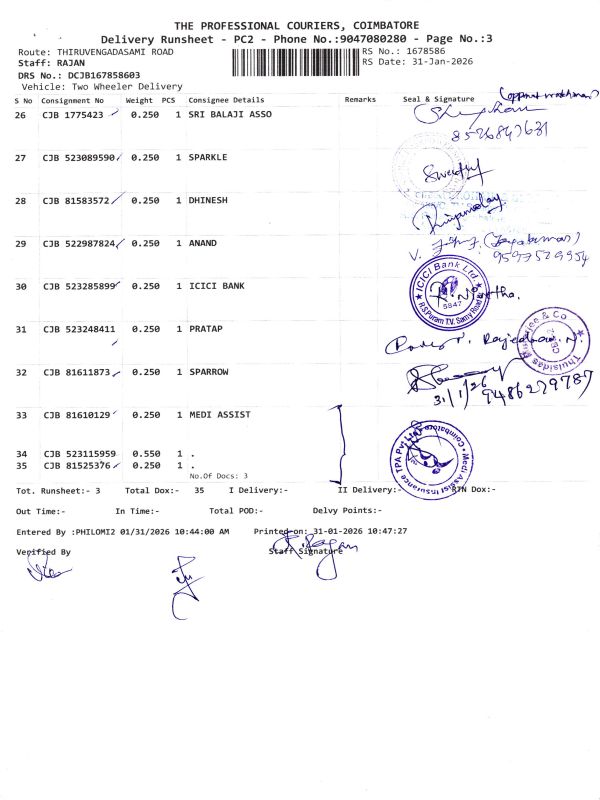 THE PROFESSIONAL COURIERS, COIMBATORE
Delivery Runsheet - PC2 - Phone No.:9047080280 - Page No.:3
Route: THIRUVENGADASAMI ROAD RS No.: 1678586
Staff: RAJAN RS Date: 31-Jan-2026
DRS No.: DCJB167858603
Vehicle: Two Wheeler Delivery
S No Consignment No Weight PCS Consignee Details Remarks Seal & Signature
26 CJB 1775423 0.250 1 SRI BALAJI ASSO
27 CJB 523089590 0.250 1 SPARKLE
28 CJB 81583572 0.250 1 DHINESH
29 CJB 522987824 0.250 1 ANAND
V. (Jayakumar)
30 CJB 523285899 0.250 1 ICICI BANK
ICICI Bank Ltd
5847
R.S Puram T.V. Samy Road
31 CJB 523248411 0.250 1 PRATAP
Thulsidas Mukrjee & Co
CBE-2
32 CJB 81611873 0.250 1 SPARROW
31/1/26 9486229787
33 CJB 81610129 0.250 1 MEDI ASSIST
34 CJB 523115959 0.550 1 .
35 CJB 81525376 0.250 1 .
Medi Assist Insurance TPA Pvt Ltd Coimbatore
No.Of Docs: 3
Tot. Runsheet:- 3 Total Dox:- 35 I Delivery:- II Delivery:- RTN Dox:-
Out Time:- In Time:- Total POD:- Delvy Points:-
Entered By :PHILOMI2 01/31/2026 10:44:00 AM Printed on: 31-01-2026 10:47:27
Verified By Staff Signature